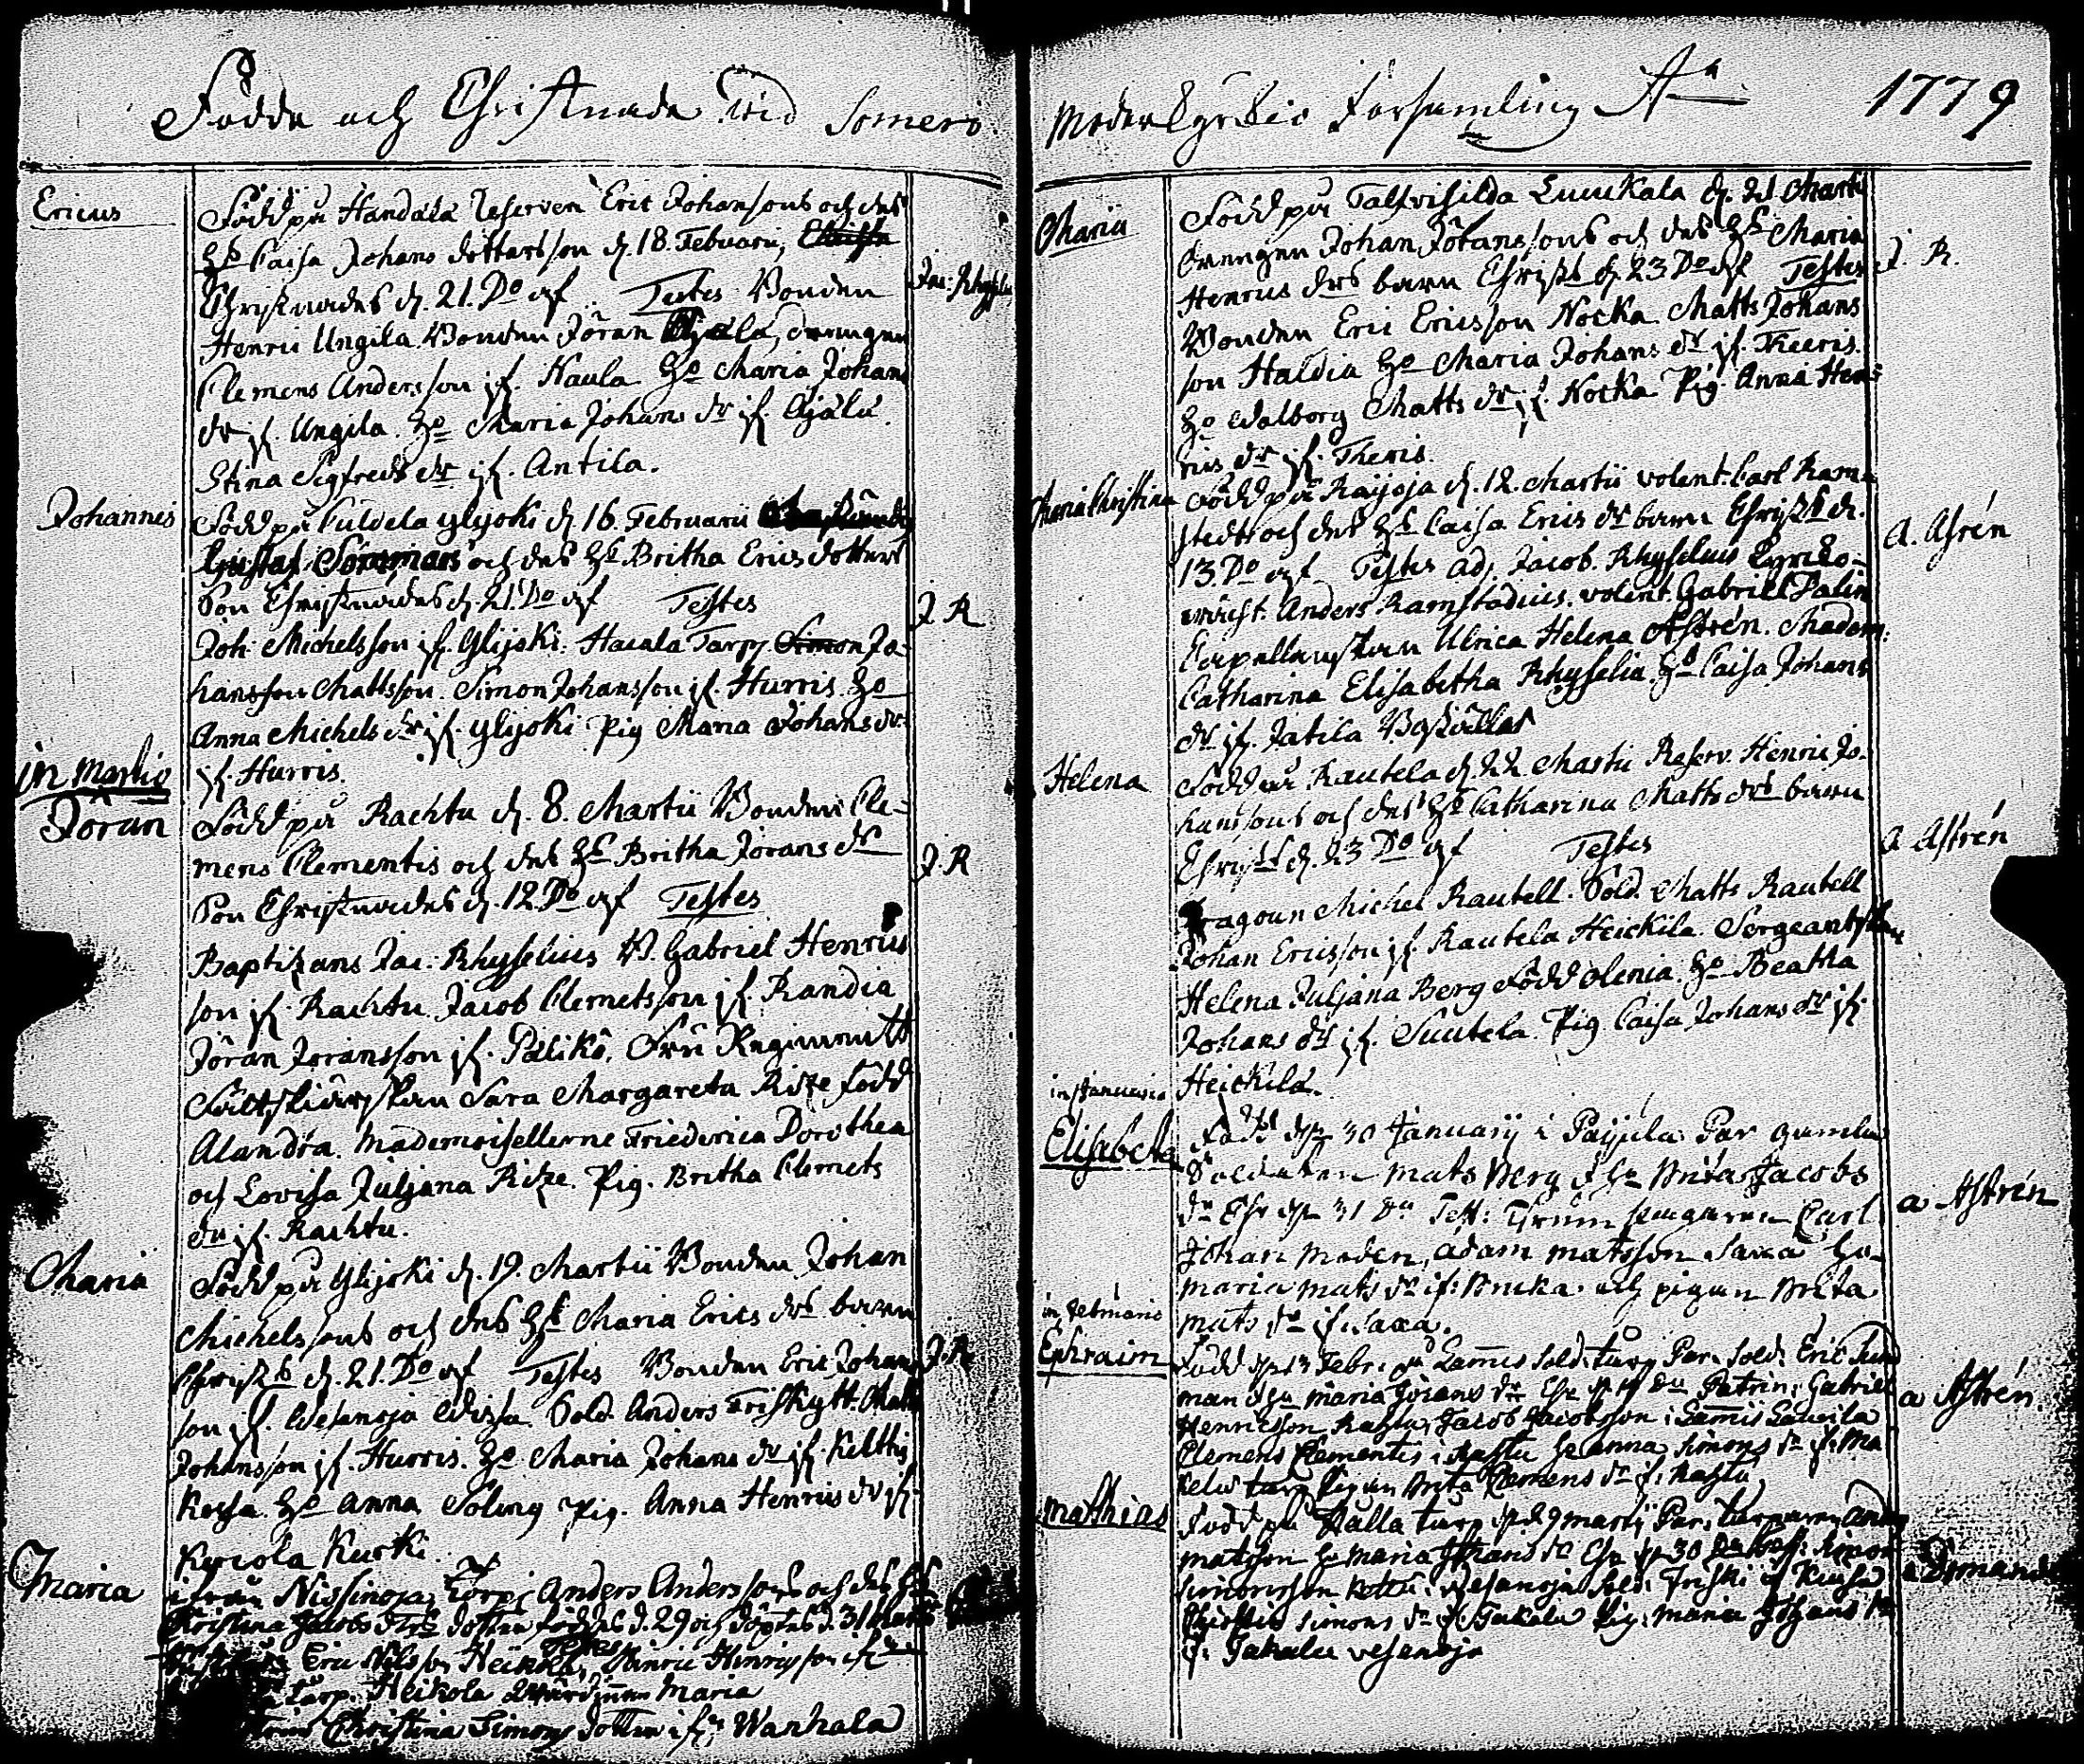 Födde och Christnade wid Somero
Ericus
Född på Handala Reserven Eric Johansons och des
Hs Caisa Johans dotters son d. 18. Februarii,
Christnades d. 21. Do af Testes Bonden
Jac: Rhyselius
Henric Ungila Bonden Jöran Ojala, drengen
Clemens Andersson if. Kaula Ho Maria Johans
dr if. Ungila. Ho Maria Johans dr if. Ojala
Stina Sigfreds dr if. Antila.
Johannes
Född på Culdela ylijoki d 16. Februarii
Gustaf och des Hs Britha Erics dotters
Son Christnades d. 21. Do af Testes
J. R
Joh: Michelsson if. Ylijoki. Hacala Torp. Simon Jo-
hansson Mattsson. Simon Johansson if. Hurris. Ho
Anna Michels dr if. ylijoki Pig Maria Johans dr.
if. Hurris.
in Martio
Jöran
Född på Rachtu d. 8. Martii Bonden Cle-
mens Clementis och des Hs Britha Jörans drs
J. R
Son Christnades d. 12. Do af Testes
Baptizans Jac: Rhyselius B. Gabriel Henrics
son if. Rachtu. Jacob Clemetsson if. Randia
Jöran Joransson if. Palikå. Fru Regiments
Fältskiärskan Sara Margareta Ritze född
Alandra. Mademoisellerne Friederica Dorothea
och Lovisa Juljana Ritze. Pig. Britha Clemets
dr if. Rachtu.
Maria
Född på Ylijoki d. 19. Martii Bonden Johan
Michelssons och des Hs Maria Erics drs barn
Christs d. 21. Do af Testes Bonden Eric Johans
J. R
son if. Wesanoja Sold. Anders Friskytt. Matts
Johansson if. Hurris. Ho Maria Johans dr if. Kelttis
Kocha. Ho Anna Söling Pig. Anna Henrics dr if
Kurki.
Maria
ifrån Nissinoja Torp: Anders Anderssons och des Hs
Kristina Jacobs drs dotter föddes d. 29 och döptes d. 31
Eric Nilsson Heikola, Hinric Hinricsson if
torp. Heikola Maria
Christina Simons dotter ifr. Warhala
Moder Kyrkio Församling Ao 1779
Maria
Född på Talpvihilda Luukala d. 21 Martii
drengen Johan Jöransons och des Hs Maria
Henrics drs barn Christs d. 23 Do af Testes
J. R.
Bonden Eric Ericsson Nocka Matts Johans
son Haldia Ho Maria Johans dr if. Theeris.
Ho Walborg Matts dr if. Nocka Pig. Anna Hen-
rics dr if. Theris.
Maria Christina
Född på Kaijoja d. 12. Martii volent: Carl Ram-
stedts och des Hs Caisa Erics drs barn Christs d.
A. Astrén
13. Do af Testes ad. Jacob. Rhyselius Kyrko-
Anders Ramstadius. volent Gabriel Palin
Capellanskan Ulrica Helena Astrén. Madem:
Catharina Elisabetha Rhyselia Ho Caisa Johans
dr if. Jatila
Helena
Född på Rautela d. 22. Martii Reserv. Henric Jo-
hanssons och des Hs Catharina Matts drs barn
Christs d. 23 Do af Testes
A. Astrén
Dragoun Michel Rautell. Sold. Matts Rautell
Johan Ericsson if. Rautela Heickila. Sergeantskan
Helena Juljana Berg född Olenia. Ho Beatha
Johans dr if. Suutela. Pig Caisa Johans dr if.
Heickilä.
in Januario
Elisabeta
Född den 30 Januarij i Paijula Par gamla
Soldaten Mats Berg & Ho Brita Jacobs
dr Chr den 31 Do Test: Carl
a Astrén
Johan Moden, Adam Matsson Saxa Ho
Maria Mats dr if. och pigan Brita
Mats dr if. Saxa.
in Februario
Ephraim
Född den 13 Febr. på Lamis sold. torp Par. sold. Eric Sund
man & Ho Maria Jörans dr Patrin: Gabriel
a Astrén.
Henricsson Rachtu, Jacob Jacobsson i Lamis
Clemens Clementis i Rachtu Ho Anna Simons dr if.
torp Pigan Brita Clemens dr if. Rachtu.
Mathias
Född på Palla torp den 29 Martij Par: torparen
Matsson Ho Maria Johans dr Chr den 30 Do
Simonsson Vesanoja Sold. Friski if
Simons dr if. Jakala Pig: Maria Johans dr
if. Jakala Vesanoja